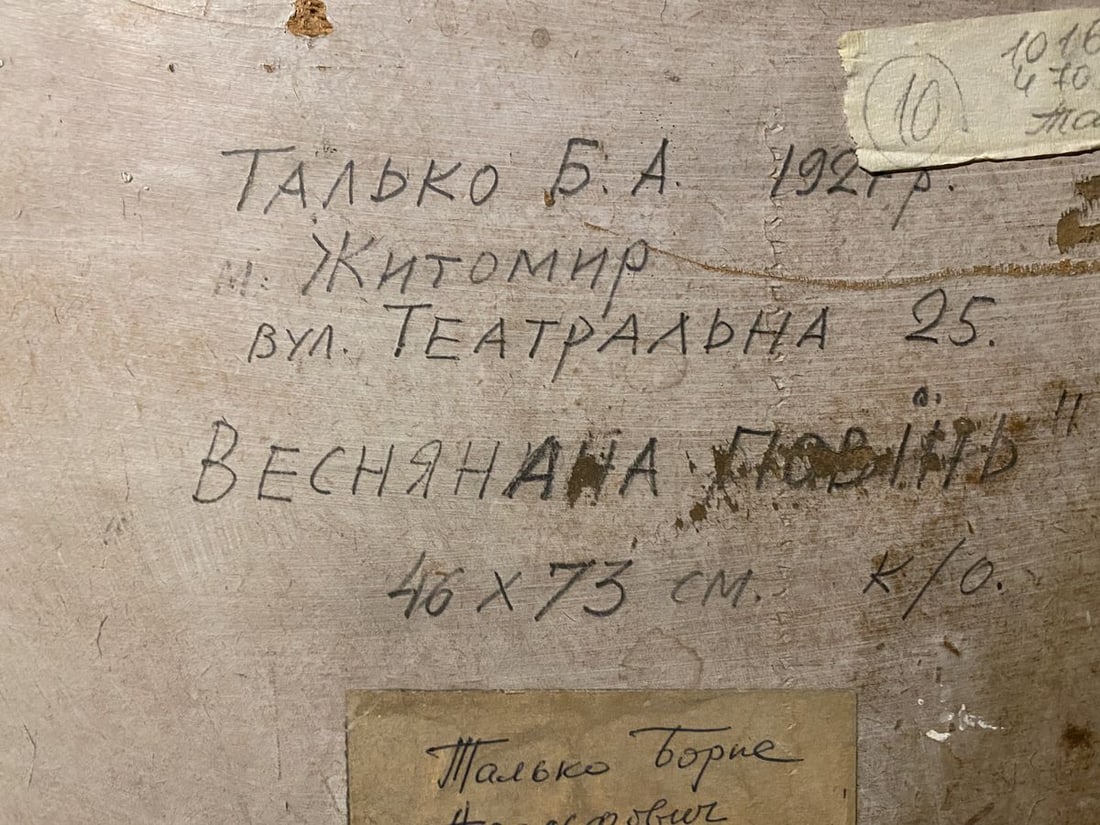 10
1016
470
Та
Талько Б. А. 1921 р.
м. Житомир
вул. Театральна 25.
"Веснянана повінь"
46 x 73 см. к/о.
Талько Борис